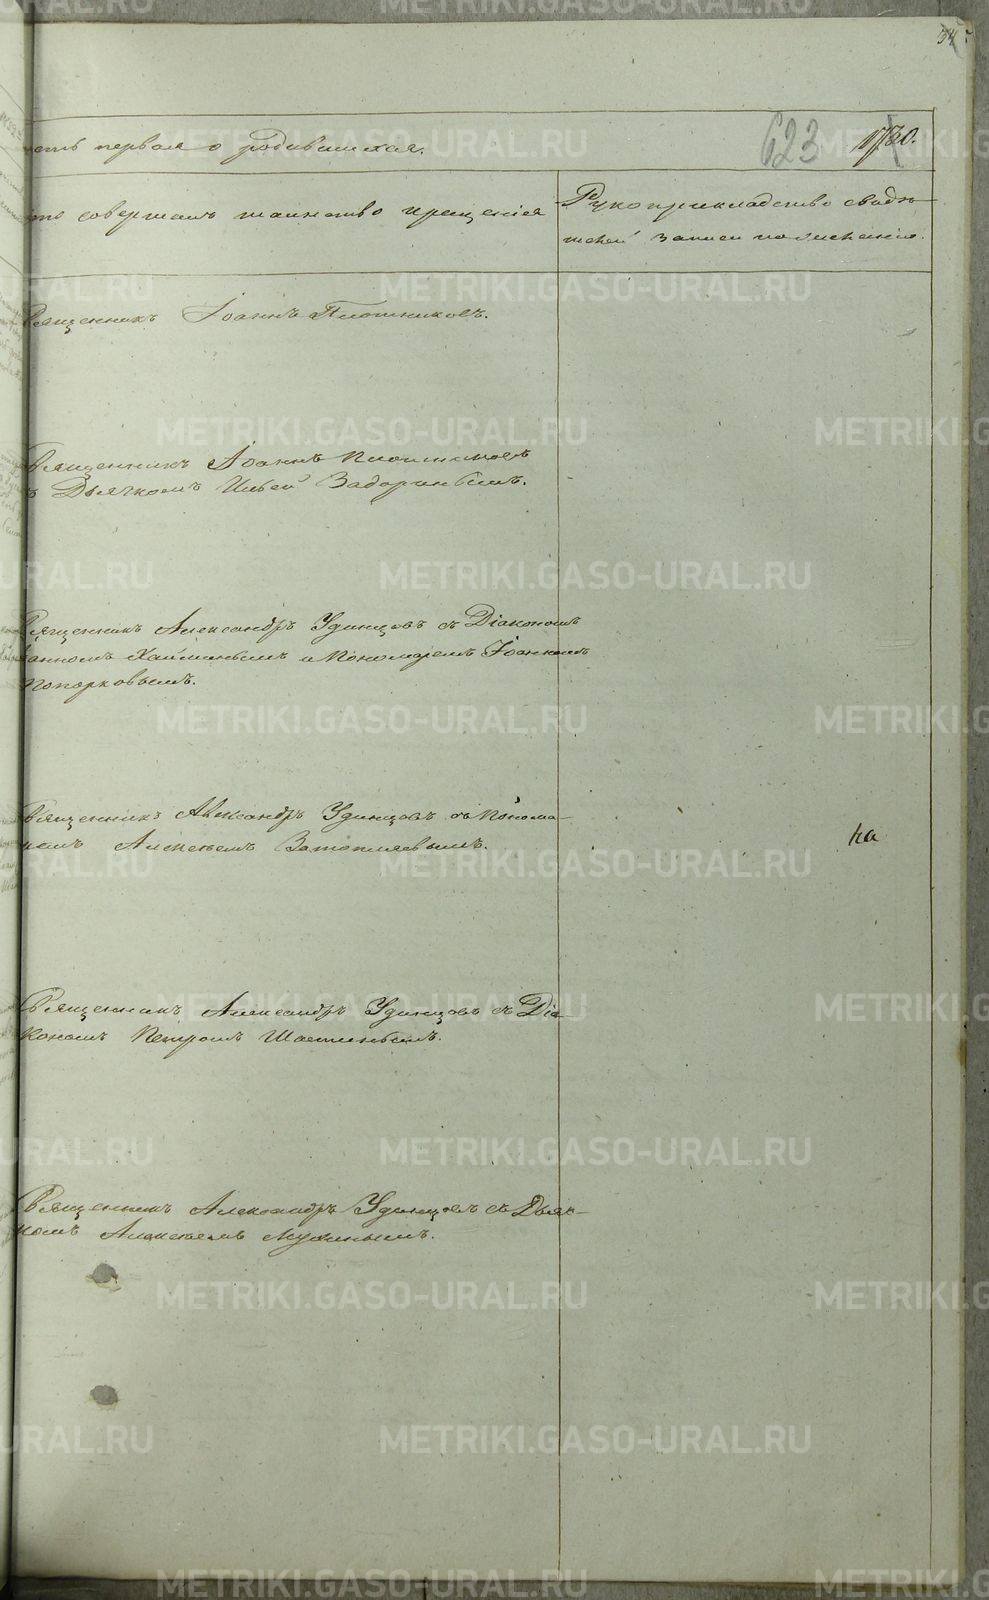 34
623
сть первая о родившихся.
то совершалъ таинство крещенія
Рукоприкладство свидѣ-
телей записи по желанію.
вященникъ Іоаннъ Плотниковъ.
Священникъ Іоаннъ Плотниковъ
съ Дьячкомъ Ильей Задоринымъ.
Священникъ Александръ Удинцовъ съ Діакономъ
Іоанномъ и Пономаремъ Іоанномъ
Топорковымъ.
Священникъ Александръ Удинцовъ съ Понома-
Алексѣемъ
ка
Священникъ Александръ Удинцовъ съ Діа-
кономъ Петромъ
Священникъ Александръ Удинцовъ съ Дьяч-
комъ Алексѣемъ
METRIKI.GASO-URAL.RU